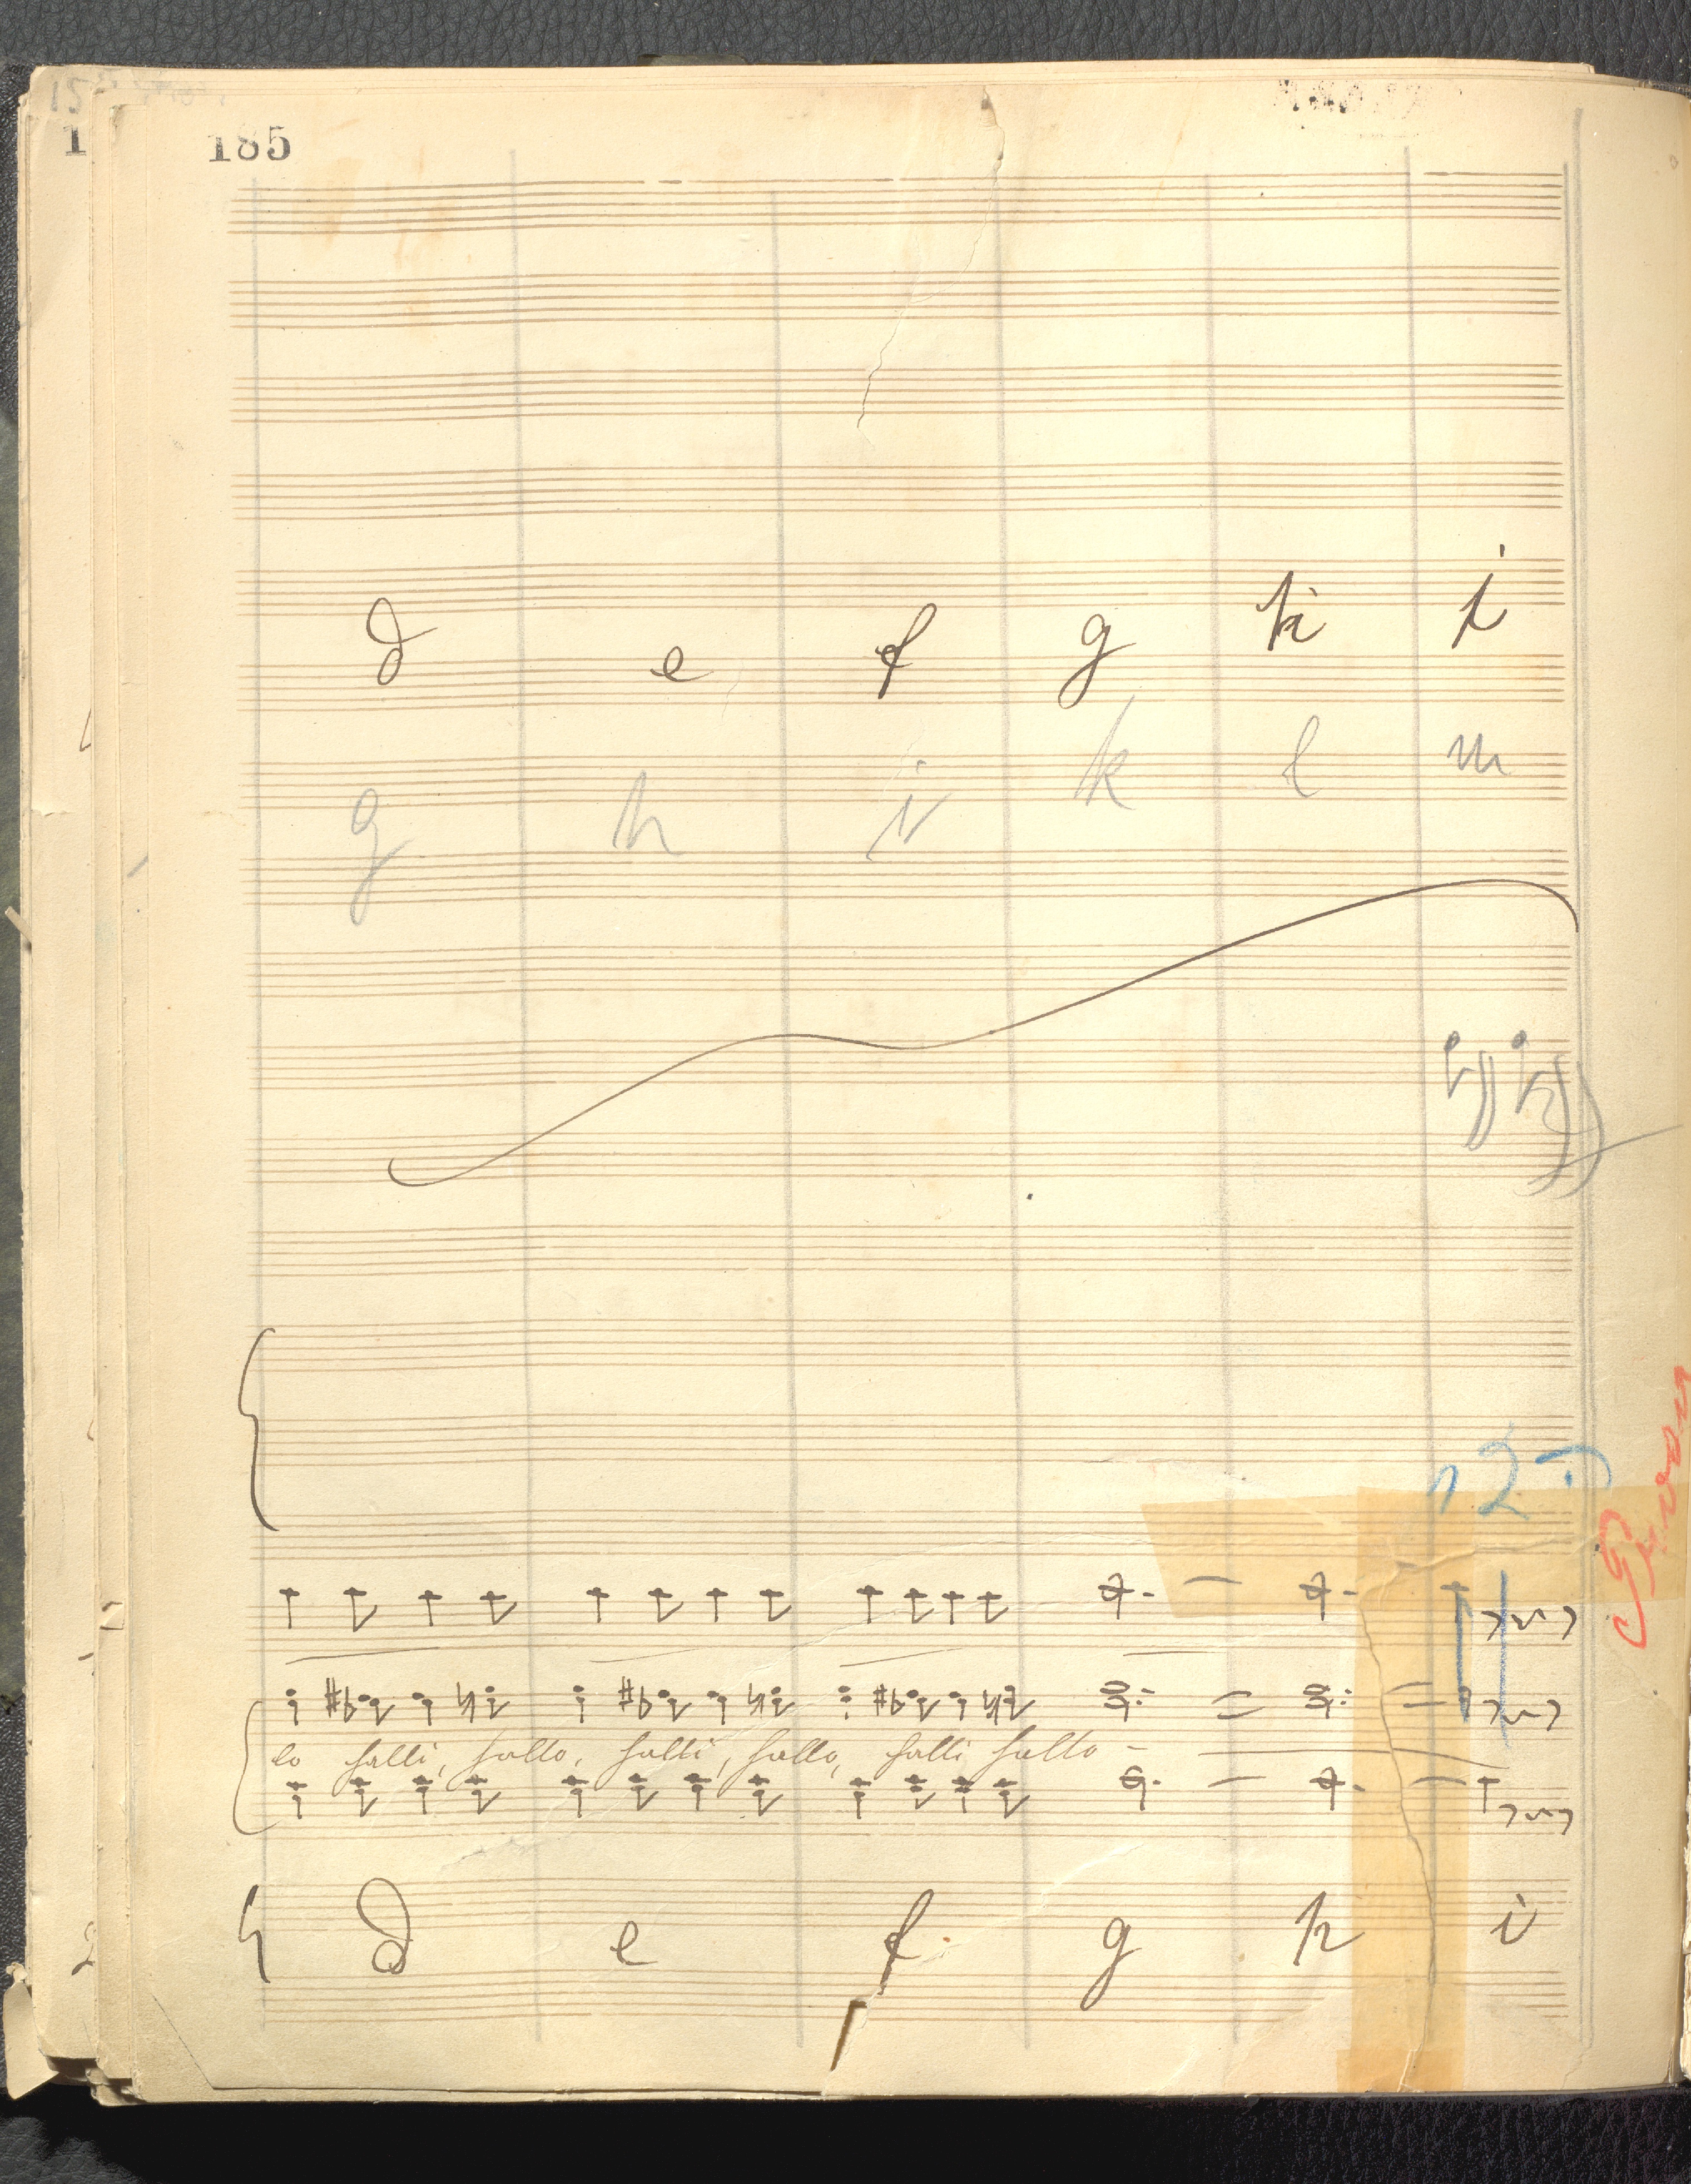 185
d e f g h i
g h i k l m
12
lo halli, hallo, halli, hallo, halli hallo –
d e f g h i